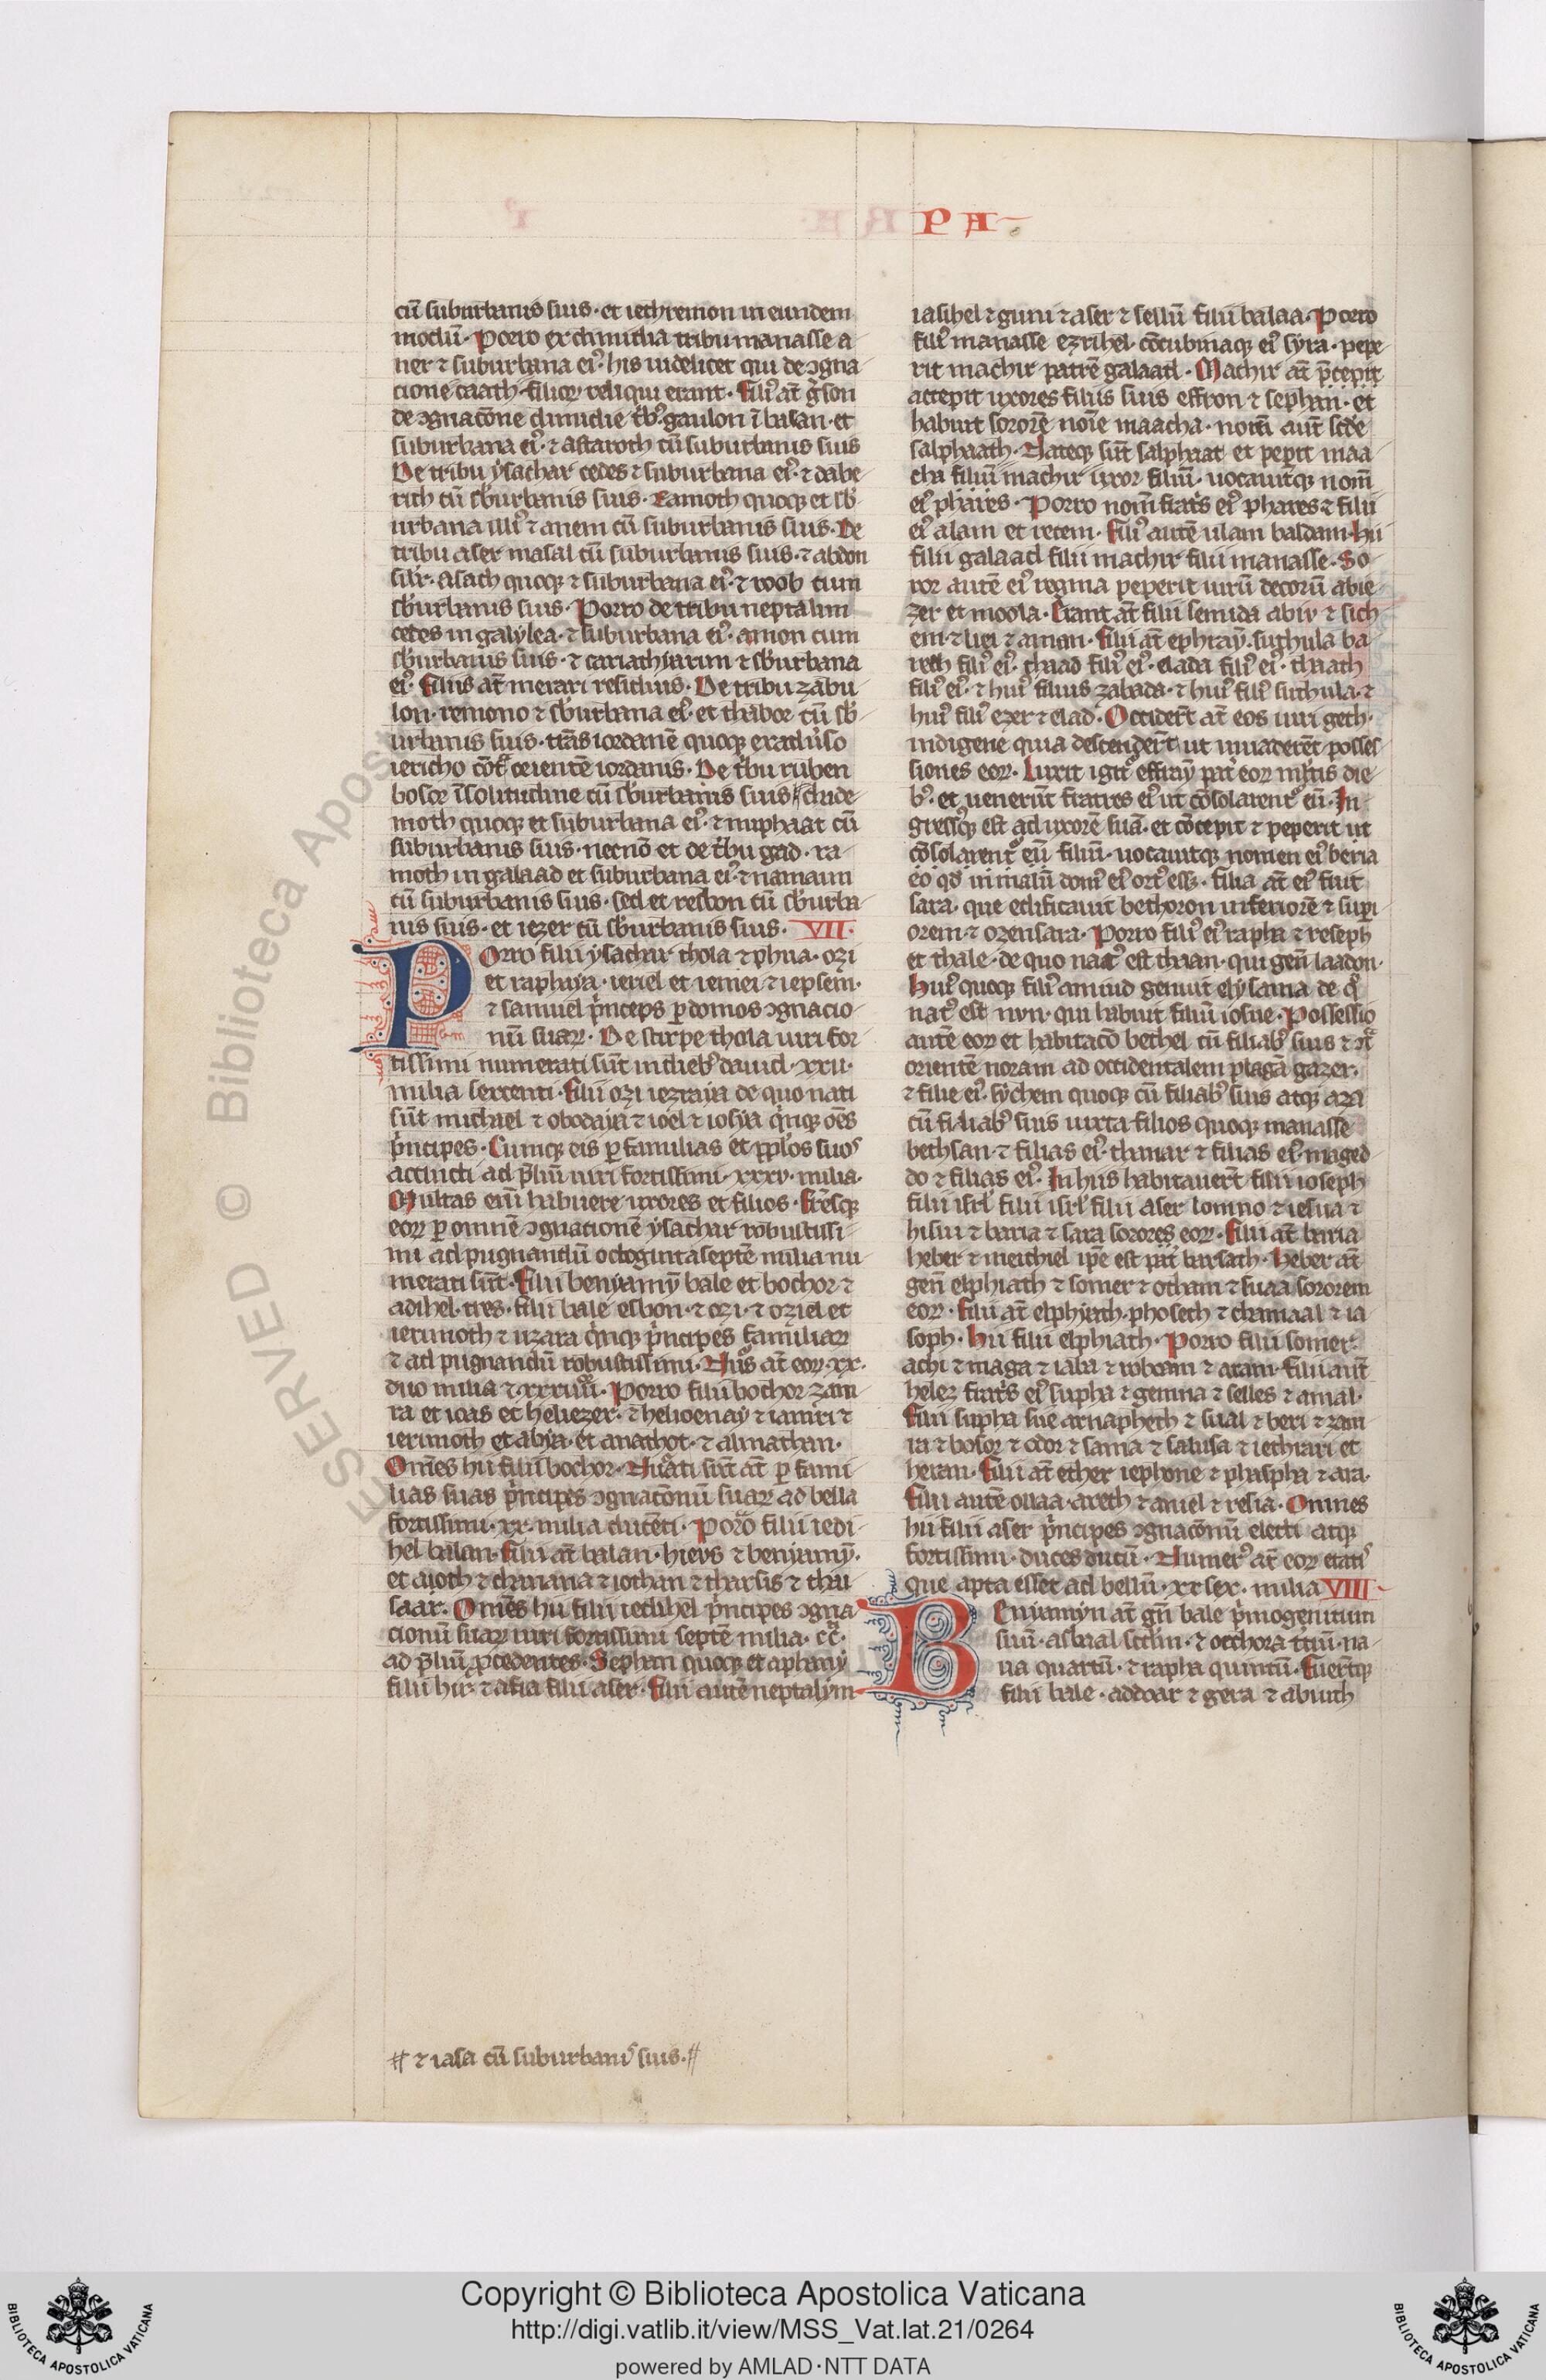 PA
cū suburbanis suis · et iethremon in eundem
modū · Porro ex dimidia tribu manasse a
ner ⁊ suburbana eiꝰ · his uidelicet qui de ꝯgna
cione caath · filioꝝ reliqui erant · Filiꝰ at̄ g̾son
de ꝯgnacōne dimidie tͥbꝰ gaulon ī basan · et
suburbana eiꝰ · ⁊ astaroth cū suburbanis suis
De tribu ysachar cedes ⁊ suburbana eiꝰ · ⁊ dabe
rith cū sb̾urbanis suis · Ramoth quoqꝫ et sb̾
urbana illiꝰ ⁊ anem cū suburbanis suis · De
tribu aser masal cū suburbanis suis · ⁊ abdon
sil̾r · asach quoqꝫ ⁊ suburbana eiꝰ · ⁊ roob cum
sb̾urbanis suis · Porro de tribu neptalim
cedes in galylea · ⁊ suburbana eiꝰ · amon cum
sb̾urbanis suis · ⁊ cariathiarim ⁊ sb̾urbana
eiꝰ · Filiis at̄ merari residuis · De tribu zabu
lon · remono ⁊ sb̾urbana eiꝰ · et thabor cū sb̾
urbanis suis · trās iordanē quoqꝫ ex aduerso
iericho cōtͣ orientē iordanis · De tͥbu ruben
bosor ī solitudine cū sb̾urbanis suis chade
moth quoqꝫ et suburbana eiꝰ · ⁊ miphaat cū
suburbanis suis · necnō et de tͥbu gad · ra
moth in galaad et suburbana eiꝰ · ⁊ namaim
cū suburbanis suis · sed et resbon cū sb̾urba
nis suis · et iezer cū sb̾urbanis suis · VII ·
Porro filii ysachar thola ⁊ phua · ozi
et raphaya · ieriel et iemei ⁊ iepsem ·
⁊ samuel pͥnceps ꝑ domos ꝯgnacio
nū suaꝝ · De stirpe thola uiri for
tissimi numerati sūt in diebꝰ dauid · xxii ·
milia sexcenti · Filii ozi iezraia de quo nati
sūt michael ⁊ obodaia ⁊ ioel ⁊ iosya qͥnqꝫ oēs
pͥncipes · Cumqꝫ eis ꝑ familias et pp̾los suos
accincti ad p̄liū uiri fortissimi · xxxv · milia ·
Multas eni̅ habuere uxores et filios · Fr̄esqꝫ
eoꝝ ꝑ omnē ꝯgnationē ysachar robustissi
mi ad pugnandū octogintaseptē milia nu
merati sūt · Filii benyamyn bale et bochor ⁊
adihel · tres · filii bale esbon · ⁊ ozi · ⁊ oziel et
ierimoth ⁊ uzara qͥnqꝫ pͥncipes familiaꝝ
⁊ ad pugnandū robustissimi · Nu̾s at̄ eoꝝ · xx ·
duo milia ⁊ xxxiiii · Porro filii bochor zam
ra et ioas et heliezer · ⁊ helioenay ⁊ iamri ⁊
ierimoth et abya · et anathot · ⁊ almathan ·
Om̄es hii filii bochor · Nūati sūt at̄ ꝑ fami
lias suas pͥncipes ꝯgnacōnū suaꝝ ad bella
fortissimi · xx · milia ducēti · Porro filii iedi
hel balan · Filii at̄ balan · hieus ⁊ beniamyn̄ ·
et aioth ⁊ chanana ⁊ iothan ⁊ tharsis ⁊ thu
saar · Om̄es hii filii iedihel pͥncipes ꝯgna
cionū suaꝝ uiri fortissimi septē milia · cc ·
ad p̄liū ꝓcedentes · Sephan quoqꝫ et aphany
filii hir · ⁊ asia filii aser · Filii autē neptalym
iasihel ⁊ guni ⁊ aser ⁊ sellū filii balaa · Porro
filiꝰ manasse ezrihel · cōcubinaqꝫ eiꝰ syra · pepe
rit machir patrē galaad · Machir at̄ p̄cepit
accepit uxores filiis suis effron ⁊ sephan · et
habuit sororē noīe maacha · nom̄ aut̄ scd̄e
salphaath · Nateqꝫ sūt salphaat et peꝑit maa
cha filiū machir uxor filiū · uocauitqꝫ nom̄
eiꝰ phares · Porro nom̄ fratͥs eiꝰ phares ⁊ filii
eiꝰ alam et recem · Filiꝰ autē ulam baldam · hii
filii galaad filii machir filii manasse · So
ror autē eiꝰ regina peperit uirū decorū abie
zer et moola · Erant at̄ filii semida abiu ⁊ sich
em ⁊ liei ⁊ aman · Filii at̄ ephraym̄ suthula ba
reth filiꝰ eiꝰ · thaad filiꝰ eiꝰ · elada filiꝰ eiꝰ · thaath
filiꝰ eiꝰ · ⁊ huiꝰ filius zabada · ⁊ huiꝰ filiꝰ suthula · ⁊
huiꝰ filiꝰ ezer ⁊ elad · Occider̄t at̄ eos uiri geth ·
indigene quia descender̄t ut inuaderēt posses
siones eoꝝ · Luxit igitᷣ effraym̄ pat̾ eoꝝ ml̾tis die
bꝰ · et uenerūt fratres eiꝰ ut cōsolarentᷣ eū · In
gressꝰqꝫ est ad uxorē suā · et cōcepit ⁊ peperit ut
cōsolarentᷣ eū filiū · uocauitqꝫ nomen eiꝰ beria
eo qd̾ in malū domꝰ eiꝰ ortꝰ esꝫ · filia at̄ eiꝰ fuit
sara · que edificauit bethoron inferiorē ⁊ suꝑi
orem · ⁊ ozensara · Porro filiꝰ eiꝰ rapha ⁊ reseph
et thale · de quo natꝰ est thaan · qui gen̄ laadon ·
Huiꝰ quoqꝫ filiꝰ amiud genuit elysama de qͦ
natꝰ est nun · qui habuit filiū iosue · Possessio
autē eoꝝ et habitacō bethel cū filiabꝰ suis ⁊ ꝯͣ
orientē noram ad occidentalem plagā gazer ·
⁊ filie eiꝰ · sychem quoqꝫ cū filiabꝰ suis atqꝫ aza
cū filiabꝰ suis iuxta filios quoqꝫ manasse
bethsan · ⁊ filias eiꝰ · thanar ⁊ filias eiꝰ · maged
do ⁊ filias eiꝰ · In hiis habitauer̄t filii ioseph
filii isrl̾ filii isrl̾ filii Aser lomno ⁊ iesua ⁊
hisui ⁊ baria ⁊ sara sorores eoꝝ · Filii at̄ baria
heber ⁊ melchiel ip̄e est pat̾ barsath · Heber at̄
gen̄ elphiath ⁊ somer ⁊ otham ⁊ suaa sororem
eoꝝ · Filii at̄ elphiath · phosech ⁊ chamaal ⁊ ia
soph · Hii filii elphiath · Porro filii somer ·
achi ⁊ maga ⁊ iaba ⁊ roboam ⁊ aram · filii aut̄
helez fratͥs eiꝰ supha ⁊ gemna ⁊ selles ⁊ amal ·
Filii supha sue arnapheth ⁊ sual ⁊ beri ⁊ zam
ra ⁊ bosor ⁊ odor ⁊ sama ⁊ salusa ⁊ iethrari et
heran · Filii at̄ ether iephone ⁊ phaspha ⁊ ara ·
Filii autē ollaa · areth ⁊ aniel ⁊ resia · Omnes
hii filii aser pͥncipes ꝯgnacōnū electi atqꝫ
fortissimi · duces ducū · Numerꝰ at̄ eoꝝ etatͥs
que apta esset ad bellū · xx sex · milia VIII
Beniamyn at̄ gn̄ bale pͥmogenitum
suū · asbaal scd̄m · ⁊ othora tͥciū · na
ua quartū · ⁊ rapha quintū · Fuer̄tqꝫ
filii bale · addoar ⁊ gera ⁊ abiuth
⁊ iasa cū suburbanis suis ·
© Biblioteca Apos
ESERVED
Copyright © Biblioteca Apostolica Vaticana
http://digi.vatlib.it/view/MSS_Vat.lat.21/0264
powered by AMLAD·NTT DATA
BIBLIOTECA APOSTOLICA VATICANA
BIBLIOTECA APOSTOLICA VATICANA